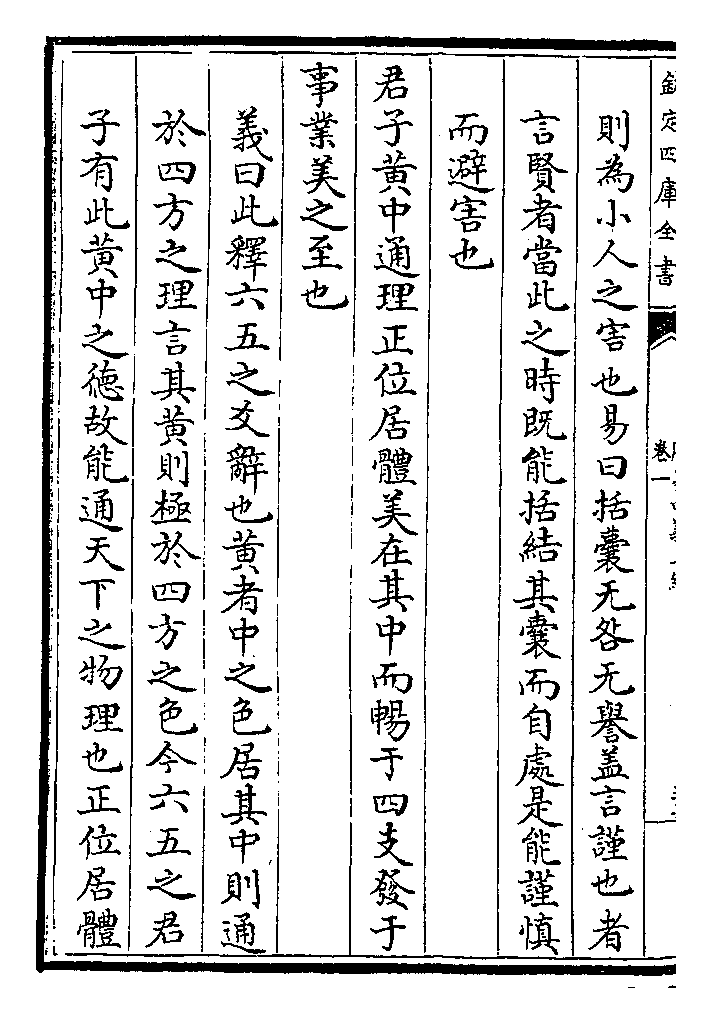 欽定四庫全書
卷一
則為小人之害也易曰括囊无咎无譽盖言謹也者
言賢者當此之時既能括結其囊而自處是能謹慎
而避害也
君子黄中通理正位居體美在其中而暢于四支發于
事業美之至也
義曰此釋六五之爻辭也黄者中之色居其中則通
於四方之理言其黄則極於四方之色今六五之君
子有此黄中之徳故能通天下之物理也正位居體